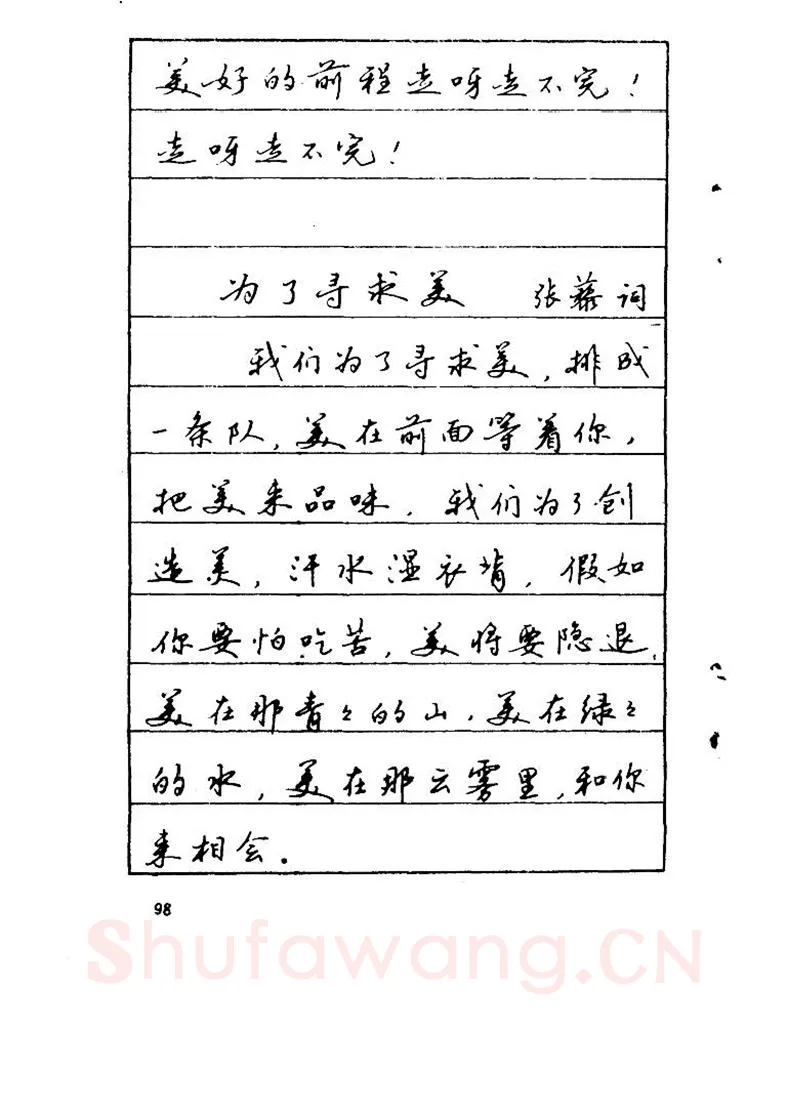 美好的前程走呀走不完！
走呀走不完！
为了寻求美 张藜词
我们为了寻求美，排成
一条队，美在前面等着你，
把美来品味．我们为了创
造美，汗水湿衣背，假如
你要怕吃苦，美将要隐退．
美在那青々的山．美在绿々
的水，美在那云雾里，和你
来相会．
98
Shufawang.CN